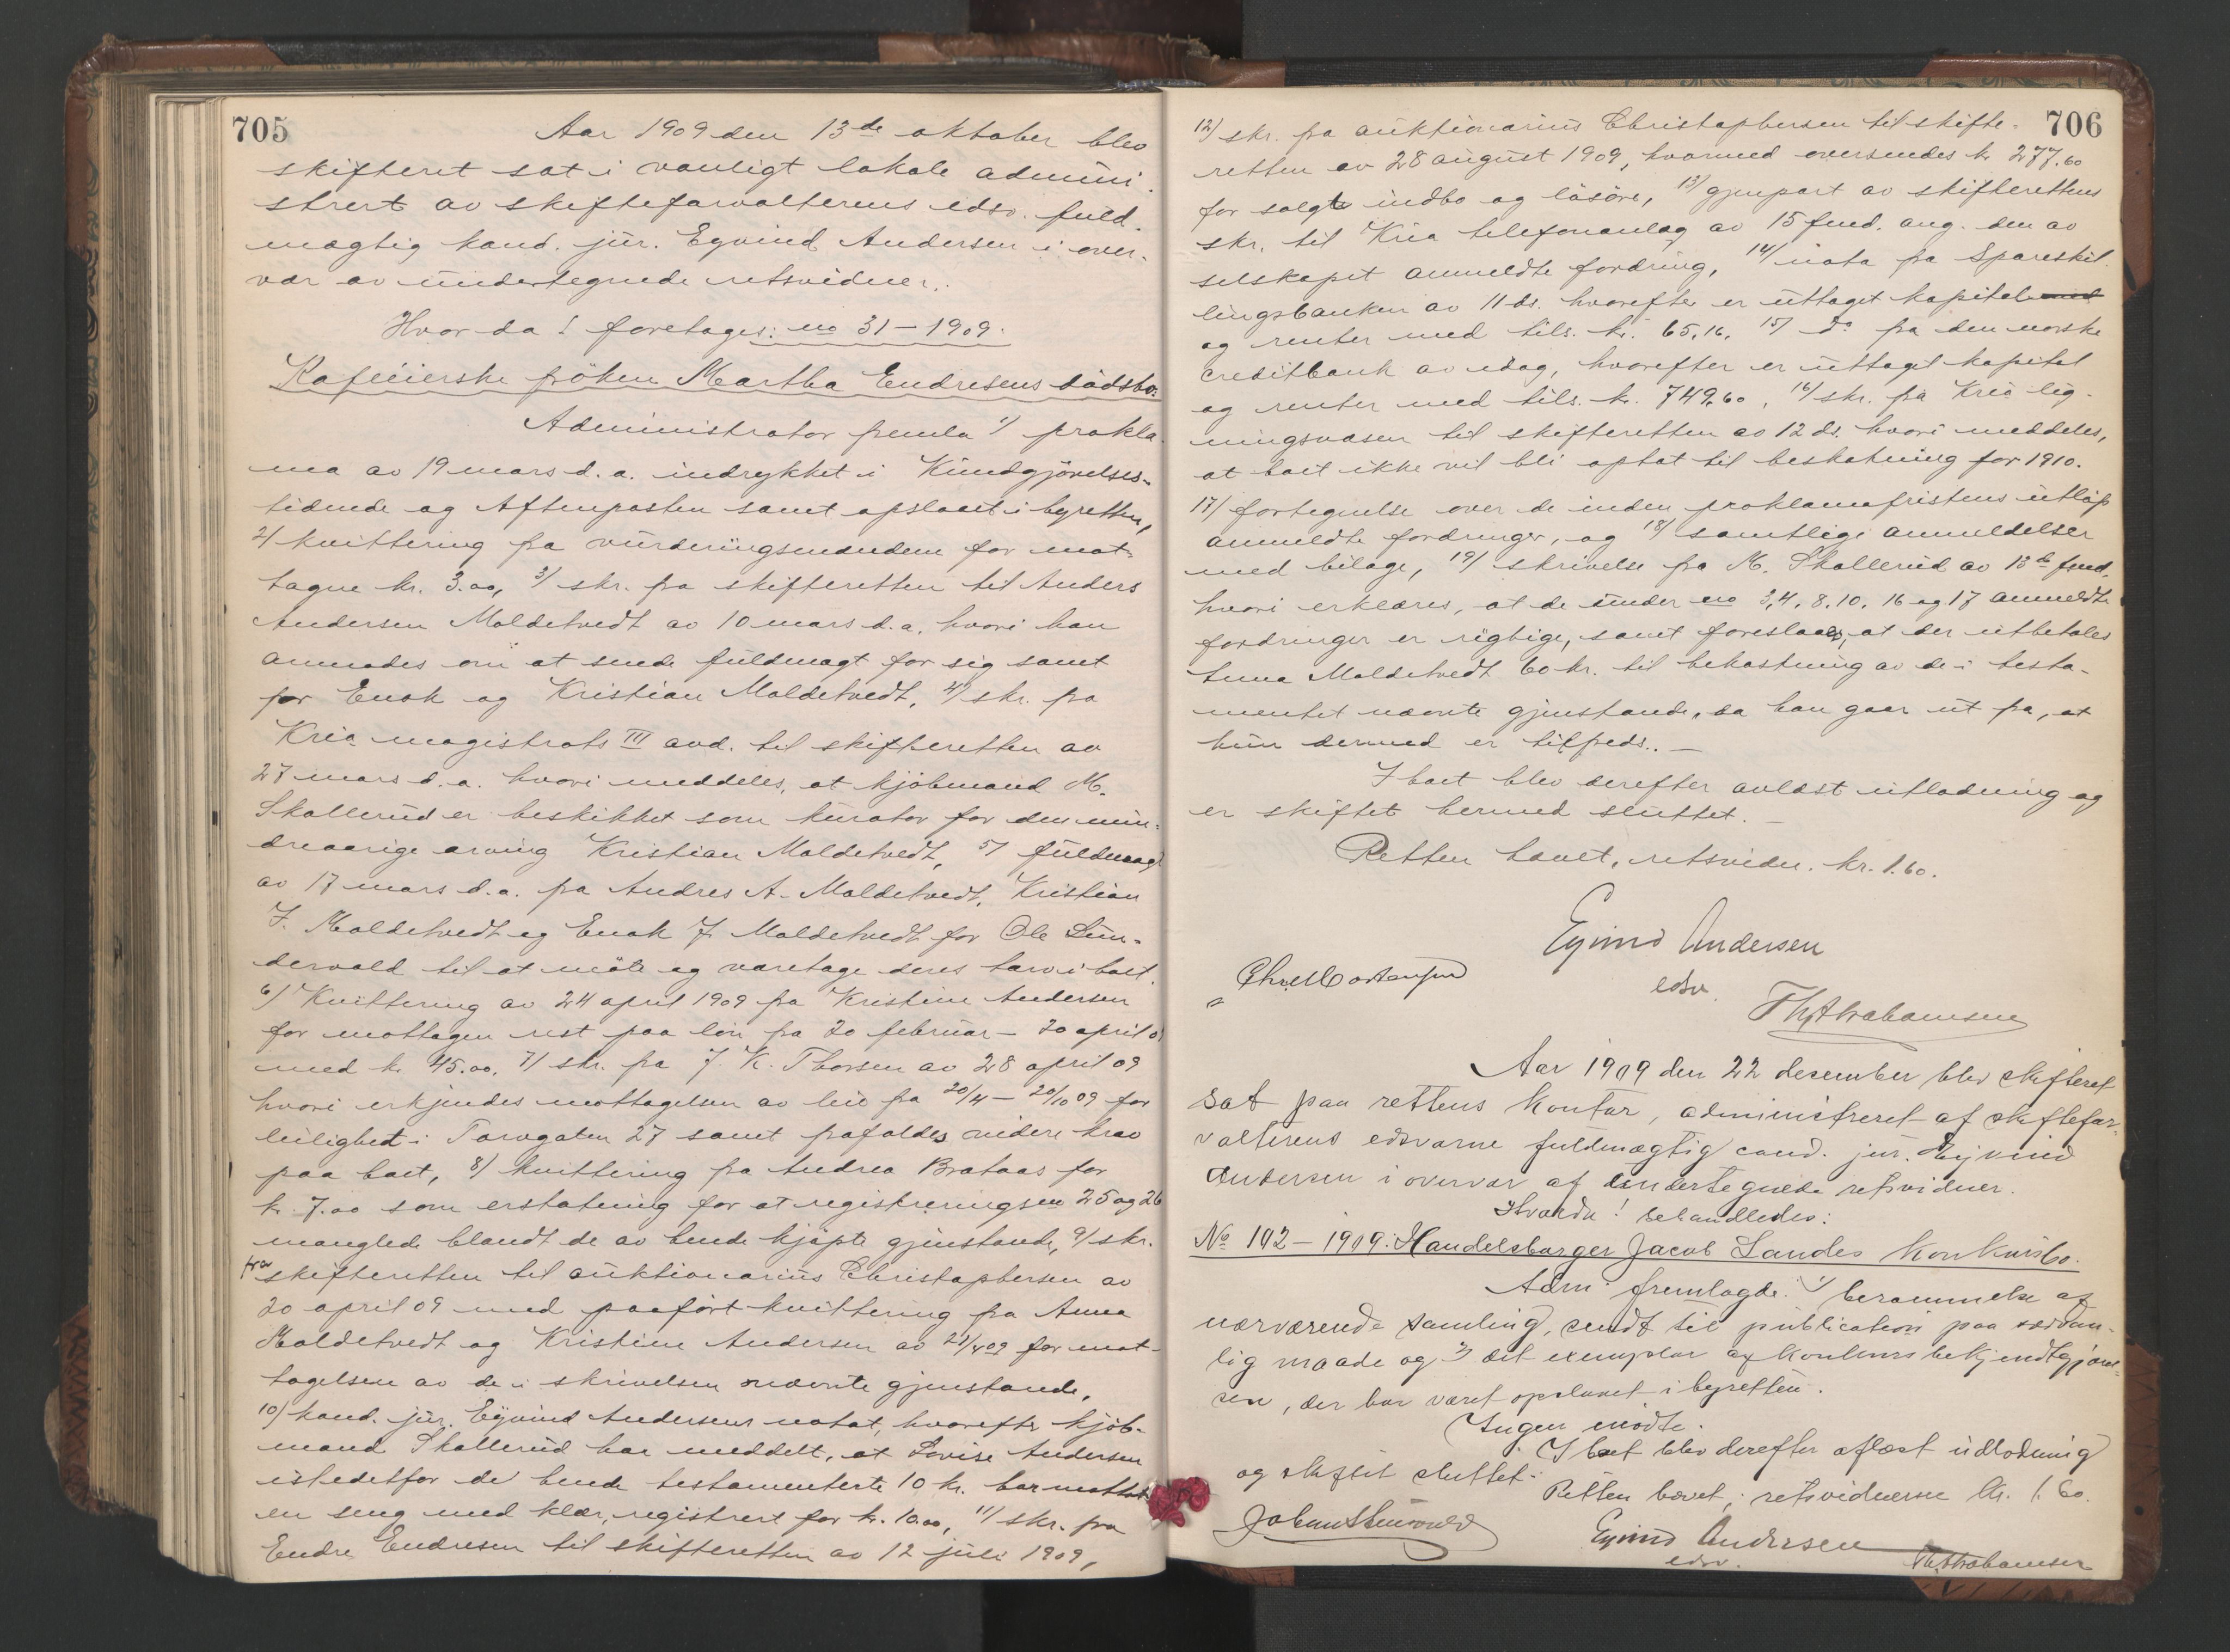 705
Aar 1909 den 13de oktober blev
skifteret sat i vanligt lokale admini-
strert av skifteforvalterens edsv. fuld-
mægtig kand. jur. Eyvind Andersen i over-
vær av undertegnede retsvidner.
Hvorda! foretages: no 31 – 1909.
Kafeeierske frøken Martha Endresens dødsbo.
Administrator fremla 1/ prokla-
ma av 19 mars d.a. indrykket i Kundgjørelses-
tidende og Aftenposten samt opslaaet i byretten,
2/ kvittering fra vurderingsmændene for mot-
tagne kr. 3.00, 3/ skr. fra skifteretten til Anders
Andersen Moldetvedt av 10 mars d.a. hvori han
anmodes om at sende fuldmagt for sig samt
for Enok og Kristian Moldetvedt, 4/ skr. fra
Kria magistrats III avd. til skifteretten av
27 mars d.a. hvori meddeles, at kjøbmand M.
Skallerud er beskikket som kurator for den min-
dreaarige arving Kristian Moldetvedt, 5/ fuldmagt
av 17 mars d.a. fra Andres A. Moldetvedt, Kristian
J. Moldetvedt og Enok J. Moldetvedt for Ole Sun-
dervold til at møte og varetage deres tarv i boet.
6/ Kvittering av 24 april 1909 fra Kristine Andersen
for mottagen rest paa løn fra 20 februar – 20 april 09
med kr. 45.00, 7/ skr. fra J. K. Thorsen av 28 april 09
hvori erkjendes mottagelsen av leie fra 20/4 – 20/10 09 for
leilighet i Torvgaten 27 samt frafaldes videre krav
paa boet, 8/ kvittering fra Andrea Brataas for
kr. 7.00 som erstatning for at registreringsno 25 og 26
manglede blandt de av hende kjøpte gjenstande, 9/ skr.
fra skifteretten til auktionarius Christophersen av
20 april 09 med paaført kvittering fra Anna
Moldetvedt og Kristine Andersen av 21/4 09 for mot-
tagelsen av de i skrivelsen nævnte gjenstande,
10/ kand. jur. Eyvind Andersens notat, hvorefter kjøb-
mand Skallerud har meddelt, at Lovise Andersen
istedetfor de hende testamenterte 10 kr. har mottat
en seng med klær, registrert for kr. 10.00, 11/ skr. fra
Endre Endresen til skifteretten av 12 juli 1909,
706
12/ skr. fra auktionarius Christophersen til skifte-
retten av 28 august 1909, hvormed oversendes kr 277.60
for solgte indbo og løsøre, 13/ gjenpart av skifterettens
skr. til Kria telefonanlæg av 15 feud. ang. den av
selskapet anmeldte fordring, 14/ nota fra Spareskil-
lingsbanken av 11 ds. hvorefter er uttaget kapital med
og renter med tils. kr. 65.16, 15/ do fra den norske
creditbank av idag, hvorefter er uttaget kapital
og renter med tils. kr. 749.60, 16/ skr. fra Kria lig-
ningsvæsen til skifteretten av 12 ds. hvori meddeles,
at boet ikke vil bli optat til beskatning for 1910.
17/ fortegnelse over de inden proklamafristens utløp
anmeldte fordringer, og 18/ samtlige anmeldelser
med bilage, 19/ skrivelse fra M. Skallerud av 13de feud,
hvori erklæres, at de under no 3, 4, 8, 10, 16 og 17 anmeldte
fordringer er rigtige, samt foreslaaes, at der utbetales
Anna Moldetvedt 60 kr. til bekostning av de i testa-
mentet nævnte gjenstande, da han gaar ut fra, at
hun dermed er tilfreds. –
I boet blev derefter avlæst utlodning og
er skiftet hermed sluttet. –
Retten hævet, retsvidn. kr. 1.60.
Eyvind Andersen
edsv.
Chr. Mortensen
Th. Abrahamsen
Aar 1909 den 22 desember blev skifteret
sat paa rettens kontor, administreret af skiftefor-
valterens edsvorne fuldmægtig cand. jur. Eyvind
Andersen i overvær af undertegnede retsvidner.
Hvorda! behandledes:
No 102 – 1909. Handelsborger Jacob Landes konkursbo.
Adm. fremlagde 1/ berammelse af
nærværende samling, sendt til publication paa sædvan-
lig maade og 2/ det exemplar af konkursbekjendtgjørel-
sen, der har været opslaaet i byretten.
Ingen mødte.
I boet blev derefter aflæst udlodning
og skiftet sluttet.
Retten hævet; retsvidnerne kr. 1.60.
Eyvind Andersen
edsv.
Th. Abrahamsen